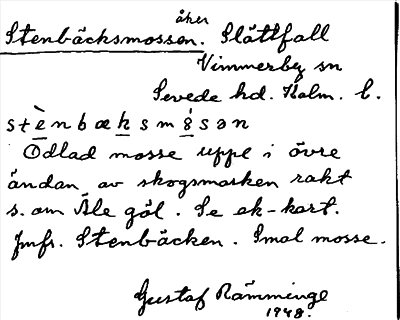 åker
Stenbäcksmossen. Slåttfall
Vimmerby sn
Sevede hd. Kalm. l.
stènbæksmåsən
Odlad mosse uppe i övre
ändan av skogsmarken rakt
s. om Åle göl. Se ek-kart.
Jmfr. Stenbäcken. Smal mosse.
Gustaf Rämminge
1948.